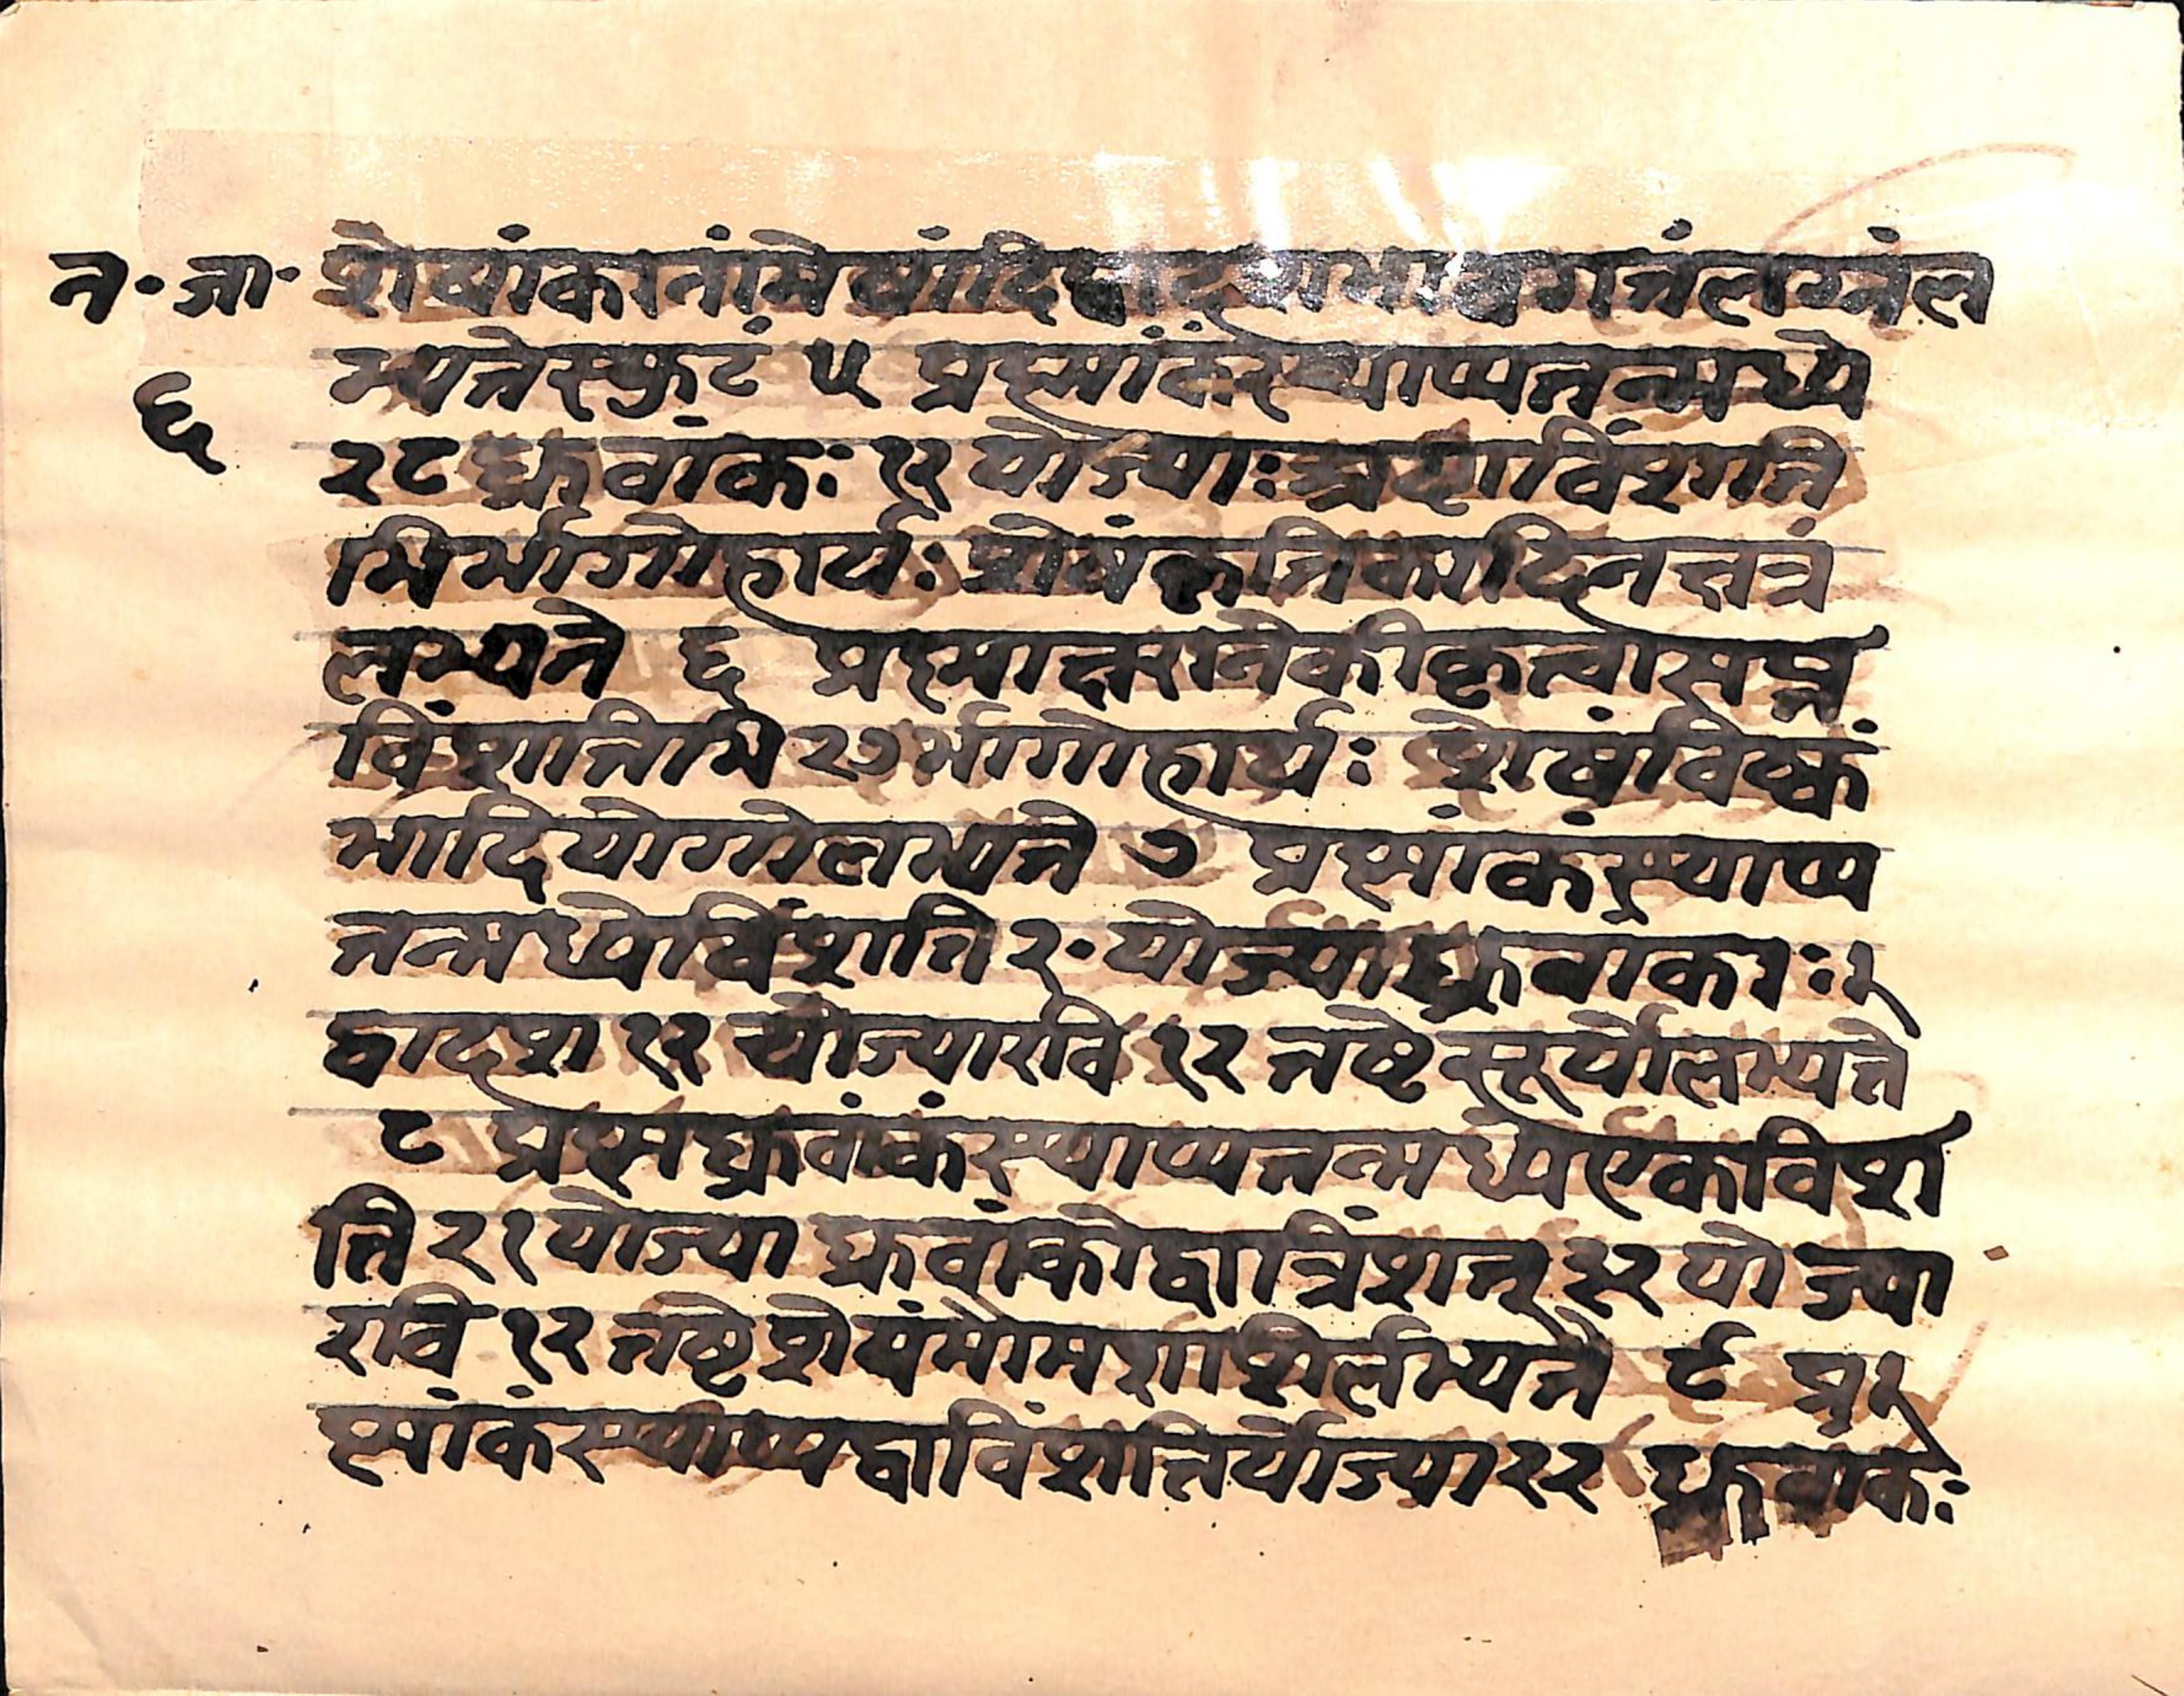 न॰ जा॰
६
शेषांकानांमेषादिद्वादशभावगतंलग्नंल
भ्यतेस्फुटं ५ प्रश्नांकंस्थाप्यतन्मध्ये
२८ ध्रुवांकः १२ योज्याः अष्टाविंशति
भिर्भागोहार्यः शेषंकृतिकादिनक्षत्रं
लभ्यते ६ प्रश्नाक्षरानेकीकृत्वासप्त
विंशतिभि २७ र्भागोहार्यः शेषंविष्कं
भादियोगोलभ्यते ७ प्रश्नांकंस्थाप्य
तन्मध्येविंशति २० योज्याध्रुवांकाः
द्वादश १२ योज्यारवि १२ तष्टेसूर्योलभ्यते
८ प्रश्नध्रुवांकंस्थाप्यतन्मध्यएकविंश
ति २१ योज्या ध्रुवांकोद्वात्रिंशत् ३२ योज्या
रवि १२ तष्टेशेषं लभ्यते ९ प्र
श्नांकंस्थाप्यद्वाविंशतिर्योज्या २२ ध्रुवांकः